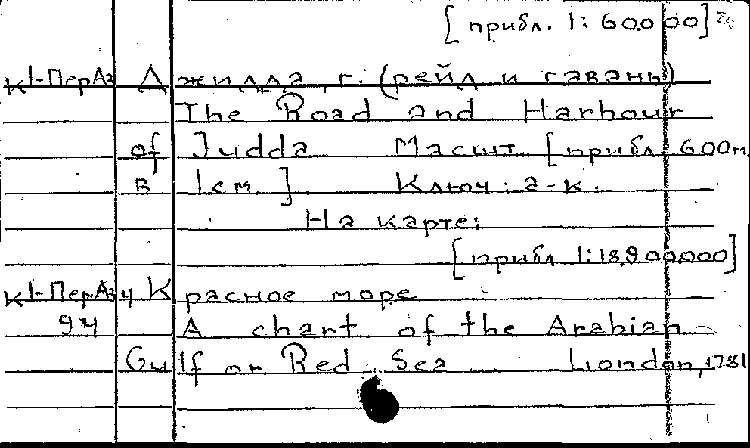 [прибл. 1:60.000]
К1-ПерАз Джидда, г. (рейд и гавань)
The Road and Harbour
of Judda Масшт. [прибл. 600м.
в 1см.] Ключ: а-к.
На карте:
[прибл. 1:18.900.000]
К1-ПерАз Красное море
94 A chart of the Arabian
Gulf or Red Sea London, 1781